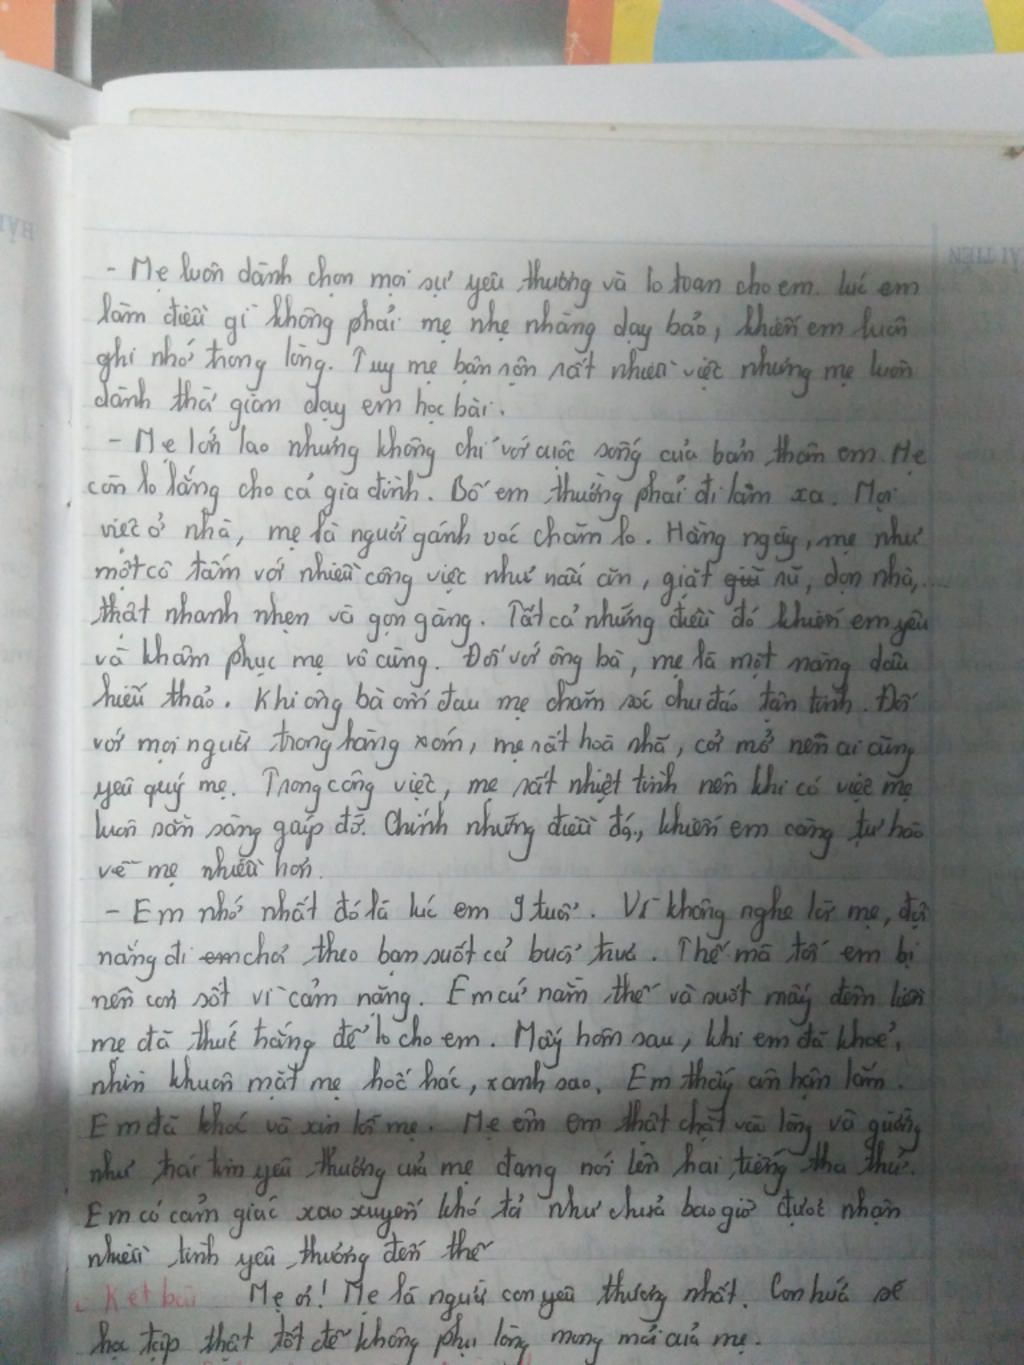 - Mẹ luôn dành chọn mọi sự yêu thương và lo toan cho em. lúc em
làm điều gì không phải mẹ nhẹ nhàng dạy bảo, khiến em luôn
ghi nhớ trong lòng. Tuy mẹ bận rộn rất nhiều việc nhưng mẹ luôn
dành thời gian dạy em học bài.
- Mẹ lớn lao nhưng không chỉ với cuộc sống của bản thân em. Mẹ
còn lo lắng cho cả gia đình. Bố em thường phải đi làm xa. Mọi
việc ở nhà, mẹ là người gánh vác chăm lo. Hàng ngày, mẹ như
một cô tấm với nhiều công việc như nấu ăn, giặt giũ rũ, dọn nhà,...
thật nhanh nhẹn và gọn gàng. Tất cả những điều đó khiến em yêu
và khâm phục mẹ vô cùng. Đối với ông bà, mẹ là một nàng dâu
hiếu thảo. Khi ông bà ốm đau mẹ chăm sóc chu đáo tận tình. Đối
với mọi người trong hàng xóm, mẹ rất hoà nhã, cởi mở nên ai cũng
yêu quý mẹ. Trong công việc, mẹ rất nhiệt tình nên khi có việc mẹ
luôn sẵn sàng gaíp đỡ. Chính những điều đó, khiến em càng tự hào
về mẹ nhiều hơn.
- Em nhớ nhất đó là lúc em 9 tuổi. Vì không nghe lời mẹ, đội
nắng đi em chơi theo bạn suốt cả buổi trưa. Thế mà tối em bị
nên cơn sốt vì cảm nặng. Em cứ nằm thế và suốt mấy đêm liền
mẹ đã thức trắng để lo cho em. Mấy hôm sau, khi em đã khoẻ,
nhìn khuôn mặt mẹ hốc hác, xanh sao, Em thấy ân hận lắm.
Em đã khóc và xin lỗi mẹ. Mẹ ôm em thật chặt vào lòng và giường
như trái tim yêu thương của mẹ đang nói lên hai tiếng tha thứ.
Em có cảm giác xao xuyến khó tả như chưa bao giờ được nhận
nhiều tình yêu thương đến thế
Kết bài Mẹ ơi! Mẹ là người con yêu thương nhất. Con hứa sẽ
học tập thật tốt để không phụ lòng mong mỏi của mẹ.